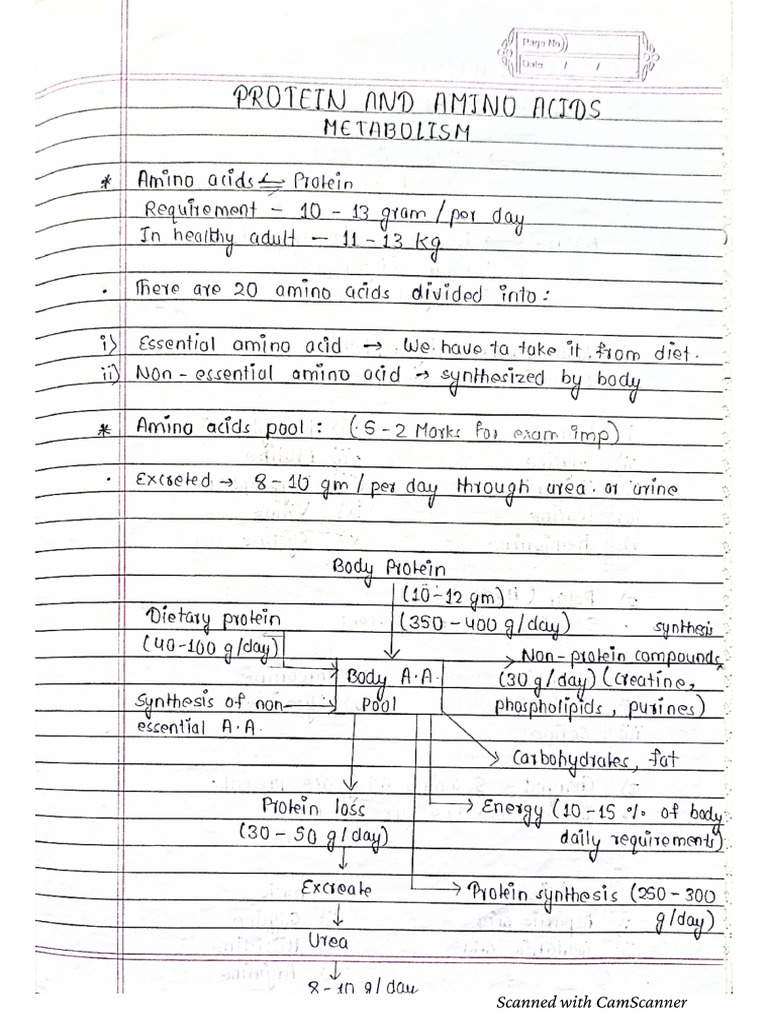 Page No
Date / /
PROTEIN AND AMINO ACIDS
METABOLISM
* Amino acids ← Protein
Requirement - 10 - 13 gram / per day
In healthy adult - 11 - 13 kg
. There are 20 amino acids divided into :
i) Essential amino acid → We have to take it from diet.
ii) Non - essential amino acid → synthesized by body
* Amino acids pool : (.5 - 2 Marks for exam imp)
. Excreted → 8 - 10 gm / per day through urea. or urine
Body Protein
(10-12 gm)
Dietary protein (350 - 400 g/day) synthesis
(40-100 g/day) Non-protein compounds
Body A.A. (30 g/day) (creatine,
Synthesis of non- Pool phospholipids, purines)
essential A.A.
Carbohydrates, fat
Protein loss Energy (10-15 % of body
(30 - 50 g/day) daily requirements)
Excreate Protein synthesis (250 - 300
g/day)
Urea
8-10 g/day
Scanned with CamScanner